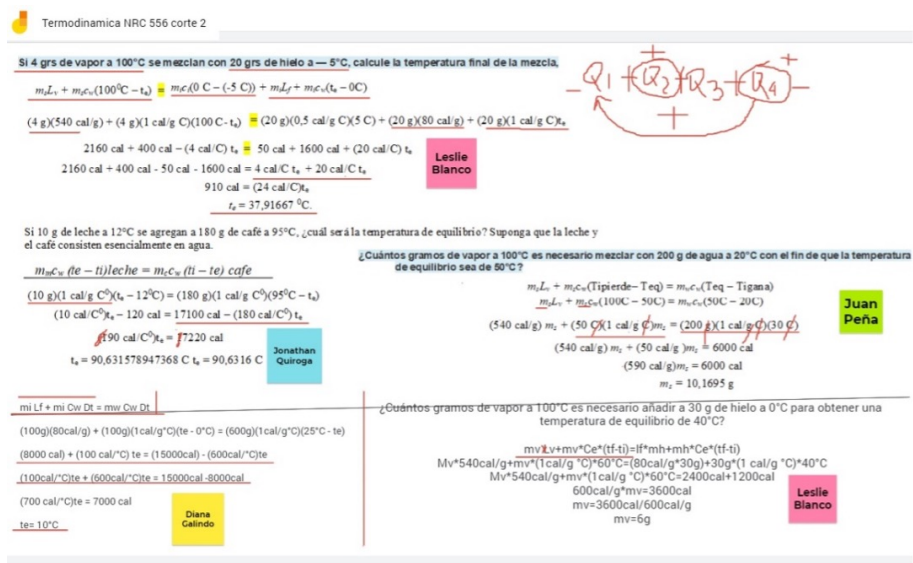 Termodinamica NRC 556 corte 2
Si 4 grs de vapor a 100°C se mezclan con 20 grs de hielo a — 5°C, calcule la temperatura final de la mezcla,
mₛLᵥ + mₛc𝓌(100⁰C − tₑ) = mᵢcᵢ(0 C − (-5 C)) + mᵢL𝒻 + mᵢc𝓌(tₑ − 0C)
(4 g)(540 cal/g) + (4 g)(1 cal/g C)(100 C- tₑ) = (20 g)(0,5 cal/g C)(5 C) + (20 g)(80 cal/g) + (20 g)(1 cal/g C)tₑ
2160 cal + 400 cal − (4 cal/C) tₑ = 50 cal + 1600 cal + (20 cal/C) tₑ
2160 cal + 400 cal - 50 cal - 1600 cal = 4 cal/C tₑ + 20 cal/C tₑ
910 cal = (24 cal/C)tₑ
tₑ = 37,91667 ⁰C.
Leslie
Blanco
- Q1 + Q2 + Q3 + Q4 -
+
+
+
Si 10 g de leche a 12°C se agregan a 180 g de café a 95°C, ¿cuál será la temperatura de equilibrio? Suponga que la leche y
el café consisten esencialmente en agua.
mₘc𝓌 (te − ti)leche = m𝒸c𝓌 (ti − te) cafe
(10 g)(1 cal/g C⁰)(tₑ − 12⁰C) = (180 g)(1 cal/g C⁰)(95⁰C − tₑ)
(10 cal/C⁰)tₑ − 120 cal = 17100 cal − (180 cal/C⁰) tₑ
190 cal/C⁰)tₑ = 17220 cal
tₑ = 90,631578947368 C tₑ = 90,6316 C
Jonathan
Quiroga
¿Cuántos gramos de vapor a 100°C es necesario mezclar con 200 g de agua a 20°C con el fin de que la temperatura
de equilibrio sea de 50°C?
mₛLᵥ + mₛc𝓌(Tipierde− Teq) = m𝓌c𝓌(Teq − Tigana)
mₛLᵥ + mₛc𝓌(100C − 50C) = m𝓌c𝓌(50C − 20C)
(540 cal/g) mₛ + (50 C)(1 cal/g C)mₛ = (200 g)(1 cal/g C)(30 C)
(540 cal/g) mₛ + (50 cal/g )mₛ = 6000 cal
(590 cal/g)mₛ = 6000 cal
mₛ = 10,1695 g
Juan
Peña
mi Lf + mi Cw Dt = mw Cw Dt
(100g)(80cal/g) + (100g)(1cal/g°C)(te - 0°C) = (600g)(1cal/g°C)(25°C - te)
(8000 cal) + (100 cal/°C) te = (15000cal) - (600cal/°C)te
(100cal/°C)te + (600cal/°C)te = 15000cal -8000cal
(700 cal/°C)te = 7000 cal
te= 10°C
Diana
Galindo
¿Cuántos gramos de vapor a 100°C es necesario añadir a 30 g de hielo a 0°C para obtener una
temperatura de equilibrio de 40°C?
mv)Lv+mv*Ce*(tf-ti)=lf*mh+mh*Ce*(tf-ti)
Mv*540cal/g+mv*(1cal/g °C)*60°C=(80cal/g*30g)+30g*(1 cal/g °C)*40°C
Mv*540cal/g+mv*(1cal/g °C)*60°C=2400cal+1200cal
600cal/g*mv=3600cal
mv=3600cal/600cal/g
mv=6g
Leslie
Blanco